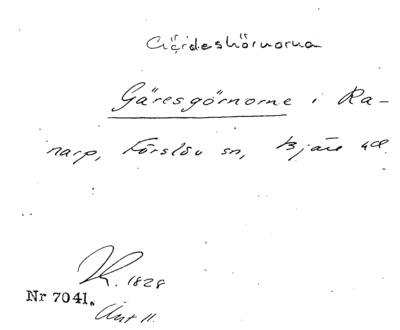 Gärdeshörnorna
Gäresgörnorne i Ra-
narp, Förslöv sn, Bjäre hd
1828
Nr 7041.
Ant 11.